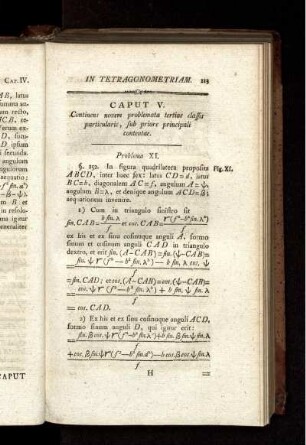 CAP. IV.
IN TETRAGONOMETRIAM. 113
CAPUT V.
Continens novem problemata tertiæ classis
particularis, sub priore principali
contentæ.
Problema XI.
§. 152. In figura quadrilatera proposita
Fig. XI.
ABCD, inter hæc sex: latus CD=d, latus
BC=b, diagonalem AC=f, angulum A=ψ,
angulum B=λ, et denique angulum ACD=β;
æquationem invenire.
1) Cum in triangulo sinistro sit
sin. CAB = b sin. λ / f et cos. CAB = r(f²—b² sin. λ²) / f
ex his et ex sinu cosinuque anguli A, formo
sinum et cosinum anguli CAD in triangulo
dextro, et erit sin. (A—CAB) = sin. (ψ—CAB) =
sin. ψ r(f²—b² sin. λ²) — b sin. λ cos. ψ
f
= sin. CAD; et cos. (A—CAB) = cos. (ψ—CAB) =
cos. ψ r(f²—b² sin. λ²) + b sin. ψ sin. λ
f
= cos. CAD.
2) Ex his et ex sinu cosinuque anguli ACD,
formo sinum anguli D, qui igitur erit:
sin. β cos. ψ r(f²—b² sin. λ²) + b sin. β sin. ψ sin. λ
f
+ cos. β sin. ψ r(f²—b² sin. λ²) — b cos. β cos. ψ sin. λ
f
H =
CAPUT